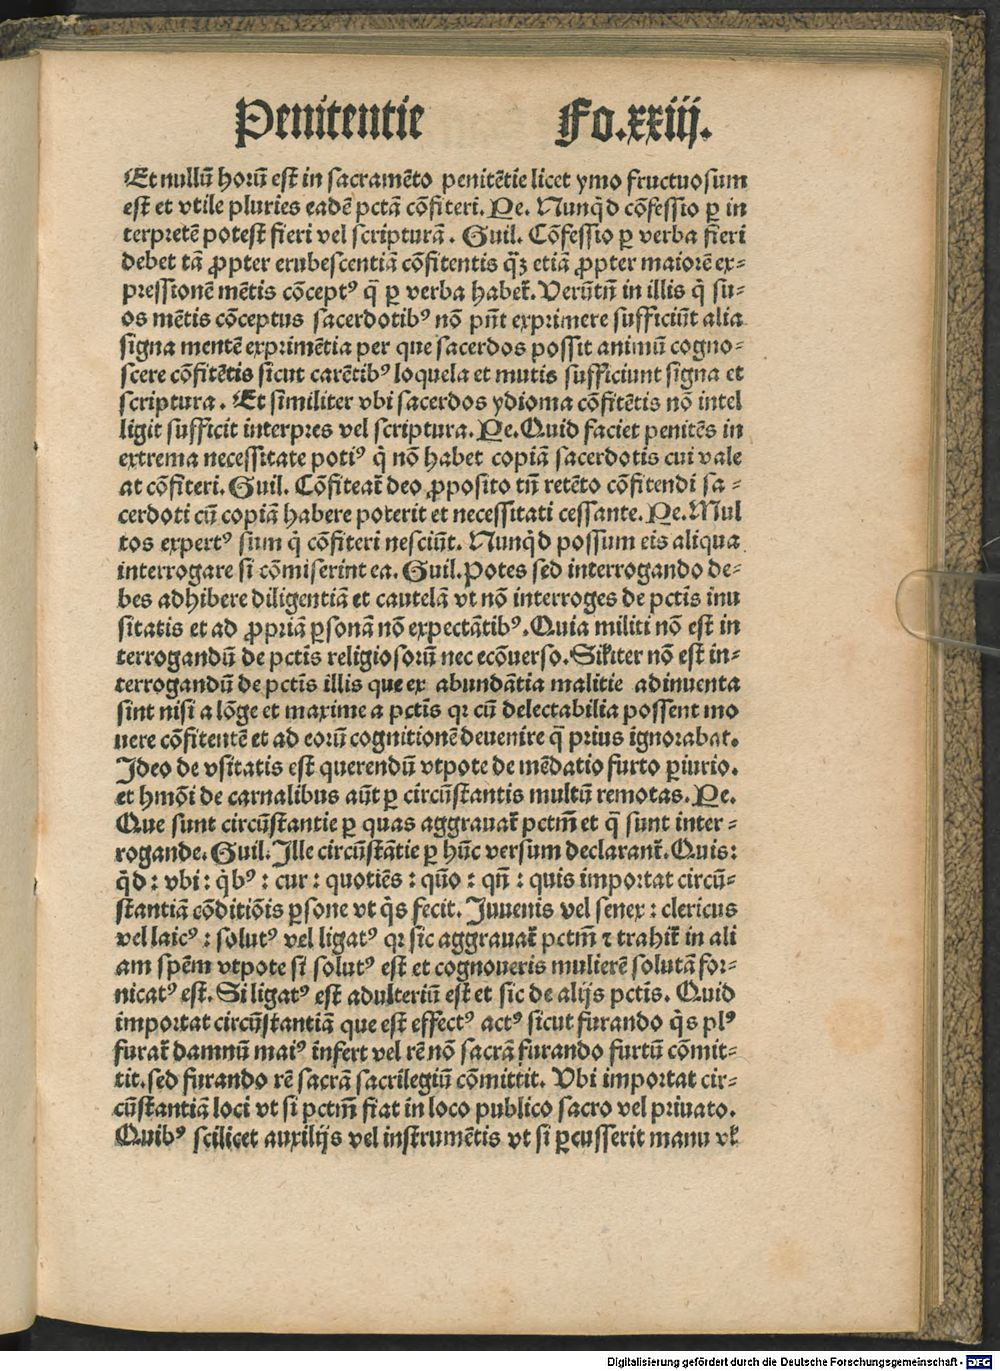 Penitentie Fo.xxiij.
Et nullū horū est in sacramēto penitētie licet ymo fructuosum
est et vtile pluries eadē pctā cōfiteri. Pe. Nunqd̄ cōfessio ꝑ in
terpretē potest fieri vel scripturā. Guil. Cōfessio ꝑ verba fieri
debet tā ꝓpter erubescentiā cōfitentis q̄ꝫ etiā ꝓpter maiorē ex⸗
pressionē mētis cōceptꝰ q̄ ꝑ verba habet̄. Verūtn̄ in illis q̄ su⸗
os mētis cōceptus sacerdotibꝰ nō pn̄t exprimere sufficiūt alia
signa mentē exprimētia per que sacerdos possit animū cogno⸗
scere cōfitētis sicut carētibꝰ loquela et mutis sufficiunt signa et
scriptura. Et similiter vbi sacerdos ydioma cōfitētis nō intel
ligit sufficit interpres vel scriptura. Pe. Quid faciet penitēs in
extrema necessitate potiꝰ q̄ nō habet copiā sacerdotis cui vale
at cōfiteri. Guil. Cōfiteat̄ deo ꝓposito tn̄ retēto cōfitendi sa⸗
cerdoti cū copiā habere poterit et necessitati cessante. Pe. Mul
tos expertꝰ sum q̄ cōfiteri nesciūt. Nunqd̄ possum eis aliqua
interrogare si cōmiserint ea. Guil. Potes sed interrogando de⸗
bes adhibere diligentiā et cautelā vt nō interroges de pctīs inu
sitatis et ad ꝓpriā ꝑsonā nō expectātibꝰ. Quia militi nō est in
terrogandū de pctīs religiosorū nec ecōuerso. Silꝉiter nō est in⸗
terrogandū de pctīs illis que ex abundātia malitie adinuenta
sint nisi a lōge et maxime a pctīs qꝛ cū delectabilia possent mo
uere cōfitentē et ad eorū cognitionē deuenire q̄ prius ignorabat.
Ideo de vsitatis est querendū vtpote de mēdatio furto ꝑiurio.
et hmōi de carnalibus aūt ꝑ circūstantis multū remotas. Pe.
Que sunt circūstantie ꝑ quas aggrauat̄ pctm̄ et q̄ sunt inter⸗
rogande. Guil. Ille circūstātie ꝑ hūc versum declarant̄. Quis:
qd̄: vbi: qb̄ꝰ: cur: quotiēs: quō: qn̄: quis importat circū⸗
stantiā cōditiōis ꝑsone vt qs̄ fecit. Iuuenis vel senex: clericus
vel laicꝰ: solutꝰ vel ligatꝰ qꝛ sic aggrauat̄ pctm̄ ⁊ trahit̄ in ali
am spēm vtpote si solutꝰ est et cognoueris mulierē solutā for⸗
nicatꝰ est. Si ligatꝰ est adulteriū est et sic de alijs pctīs. Quid
importat circūstantiā que est effectꝰ actꝰ sicut furando qs̄ plꝰ
furat̄ damnū maiꝰ infert vel rē nō sacrā furando furtū cōmit⸗
tit. sed furando rē sacrā sacrilegiū cōmittit. Vbi importat cir⸗
cūstantiā loci vt si pctm̄ fiat in loco publico sacro vel priuato.
Quibꝰ scilicet auxilijs vel instrumētis vt si ꝑcusserit manu vꝉ
Digitalisierung gefördert durch die Deutsche Forschungsgemeinschaft - DFG